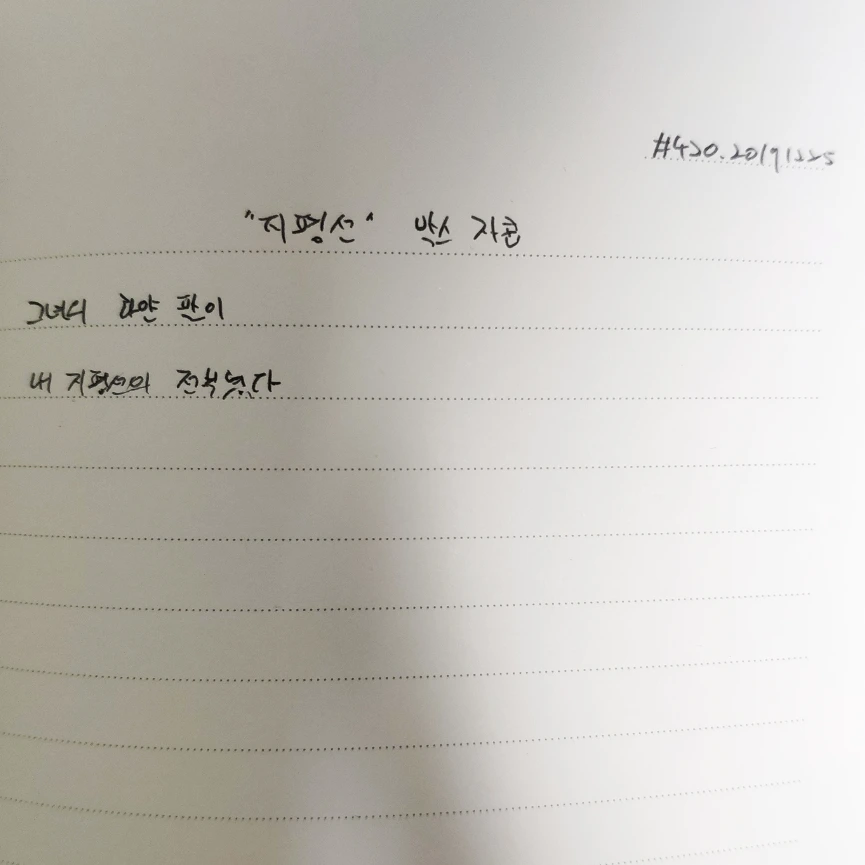 #420.20191225
"지평선" 막스 자콥
그녀의 하얀 팔이
내 지평선의 전부였다